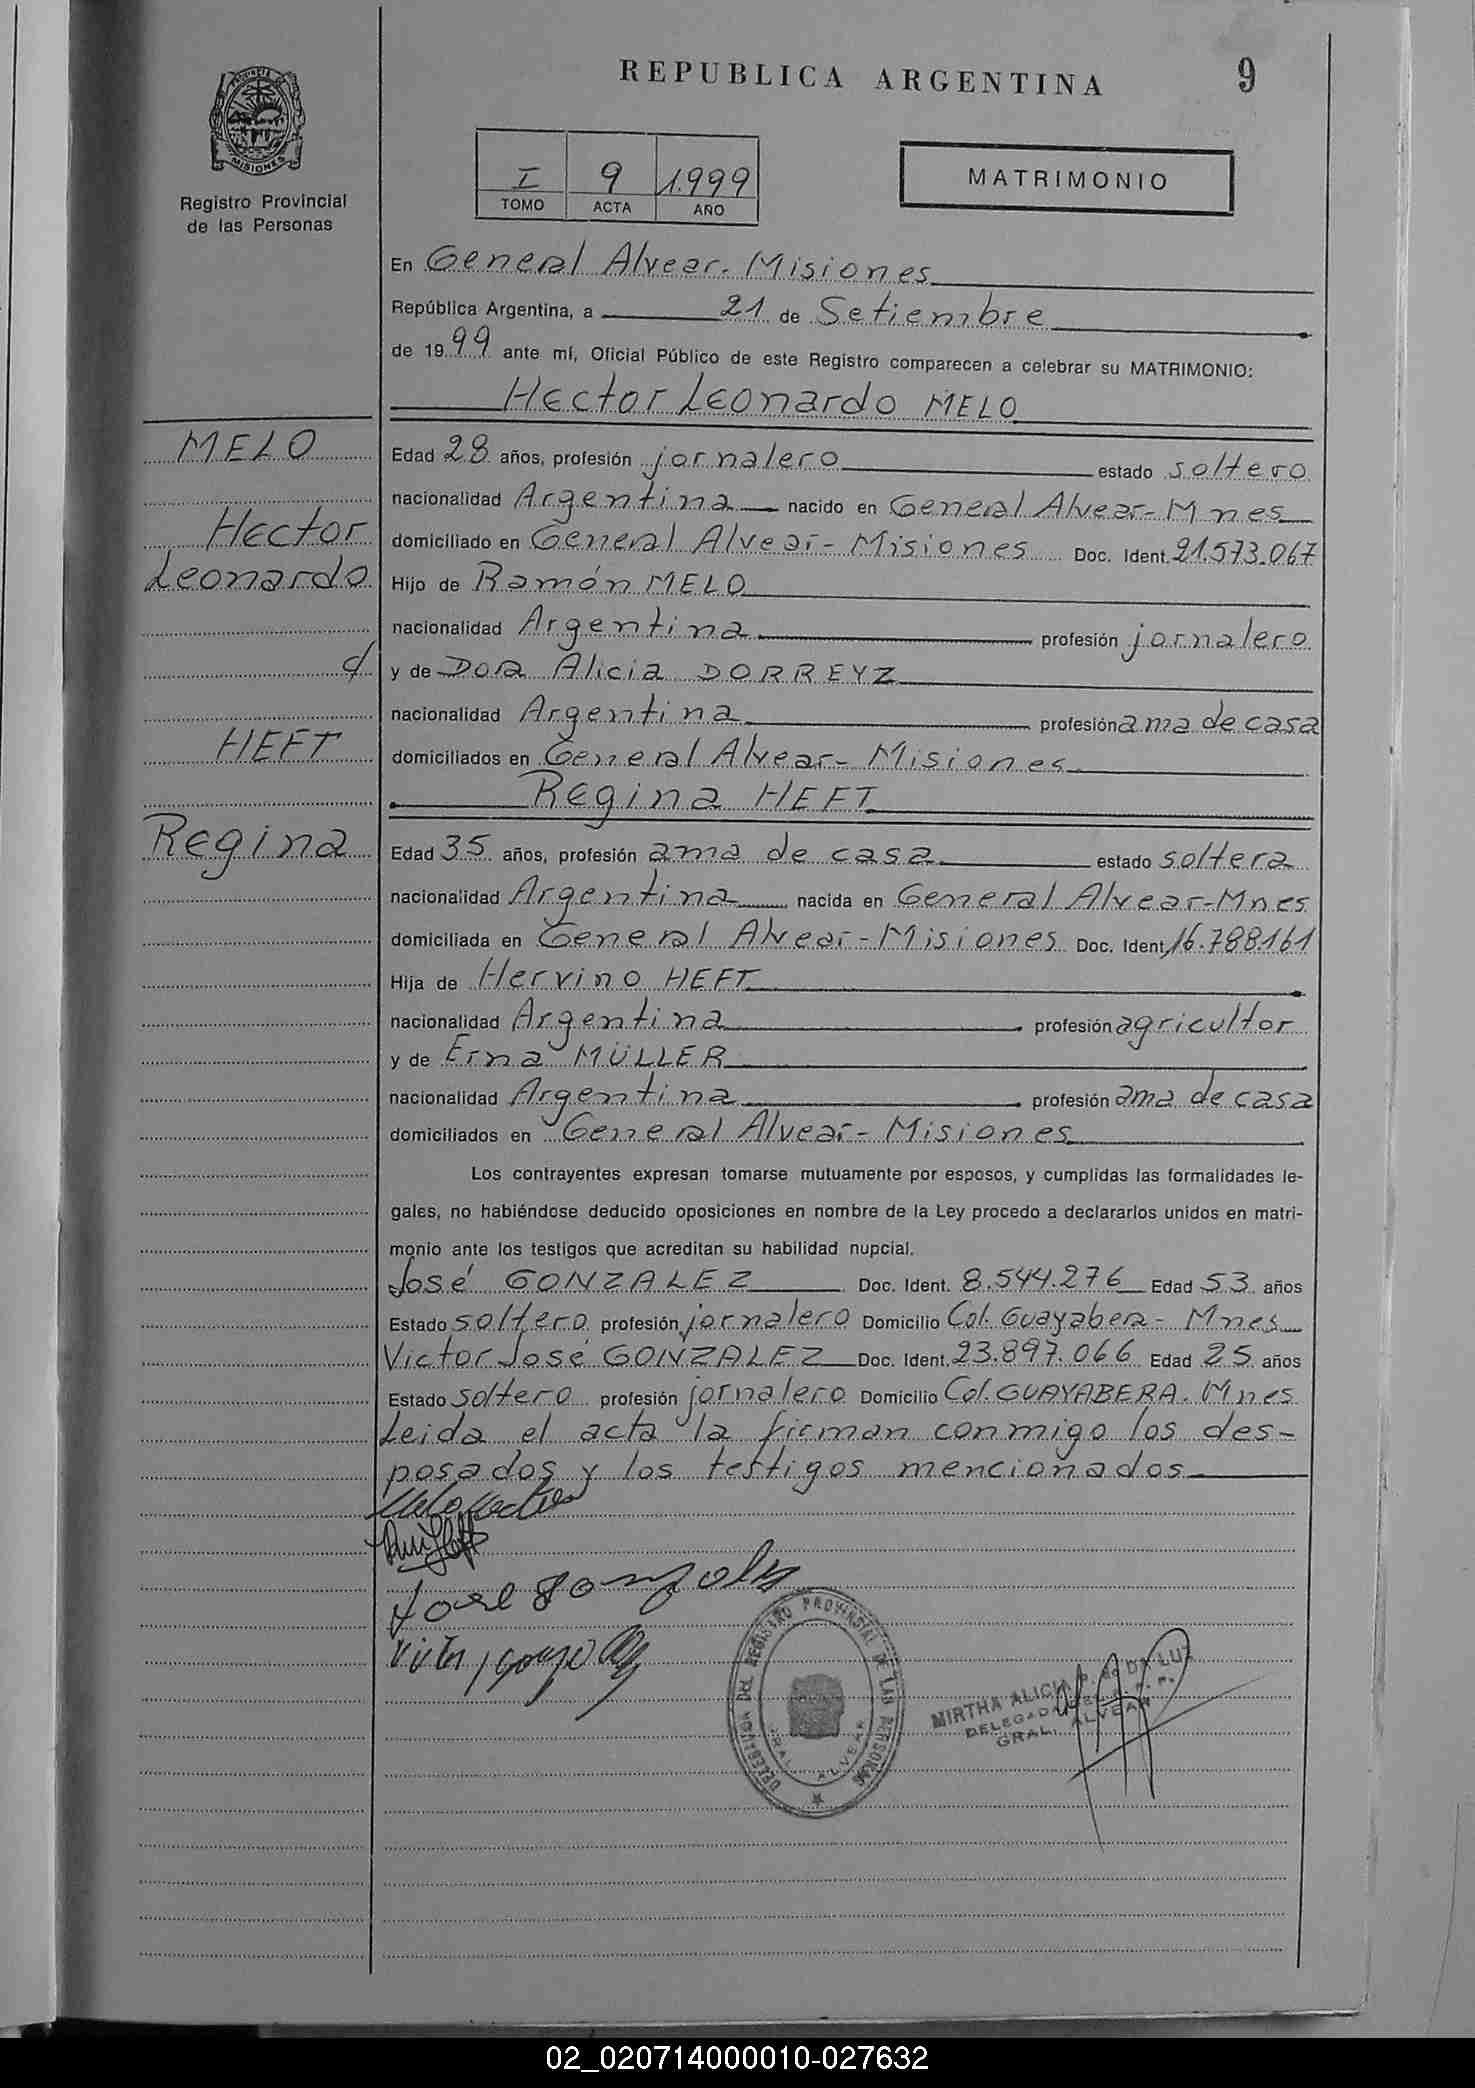 REPUBLICA ARGENTINA
9
PROVINCIA DE MISIONES
Registro Provincial
de las Personas
I 9 1.999
TOMO ACTA AÑO
MATRIMONIO
En General Alvear. Misiones
República Argentina, a 21 de Setiembre
de 1999 ante mí, Oficial Público de este Registro comparecen a celebrar su MATRIMONIO:
Hector Leonardo MELO
MELO
Hector
Leonardo
c/
HEFT
Regina
Edad 28 años, profesión jornalero estado soltero
nacionalidad Argentina nacido en General Alvear-Mnes
domiciliado en General Alvear-Misiones Doc. Ident. 21.573.067
Hijo de Ramón MELO
nacionalidad Argentina profesión jornalero
y de Dora Alicia DORREYZ
nacionalidad Argentina profesión ama de casa
domiciliados en General Alvear-Misiones
Regina HEFT
Edad 35 años, profesión ama de casa estado soltera
nacionalidad Argentina nacida en General Alvear-Mnes
domiciliada en General Alvear-Misiones Doc. Ident. 16.788.161
Hija de Hervino HEFT
nacionalidad Argentina profesión agricultor
y de Erna MÜLLER
nacionalidad Argentina profesión ama de casa
domiciliados en General Alvear-Misiones
Los contrayentes expresan tomarse mutuamente por esposos, y cumplidas las formalidades le-
gales, no habiéndose deducido oposiciones en nombre de la Ley procedo a declararlos unidos en matri-
monio ante los testigos que acreditan su habilidad nupcial.
José GONZALEZ Doc. Ident. 8.544.276 Edad 53 años
Estado soltero profesión jornalero Domicilio Col. Guayabera-Mnes
Victor José GONZALEZ Doc. Ident. 23.897.066 Edad 25 años
Estado soltero profesión jornalero Domicilio Col. GUAYABERA. Mnes
Leida el acta la firman conmigo los des-
posados y los testigos mencionados
Jose Gonzalez
DELEGACION DEL REGISTRO PROVINCIAL DE LAS PERSONAS
GRAL. ALVEAR
MIRTHA ALICIA DA LUZ
DELEGADA
GRAL. ALVEAR
02_020714000010-027632